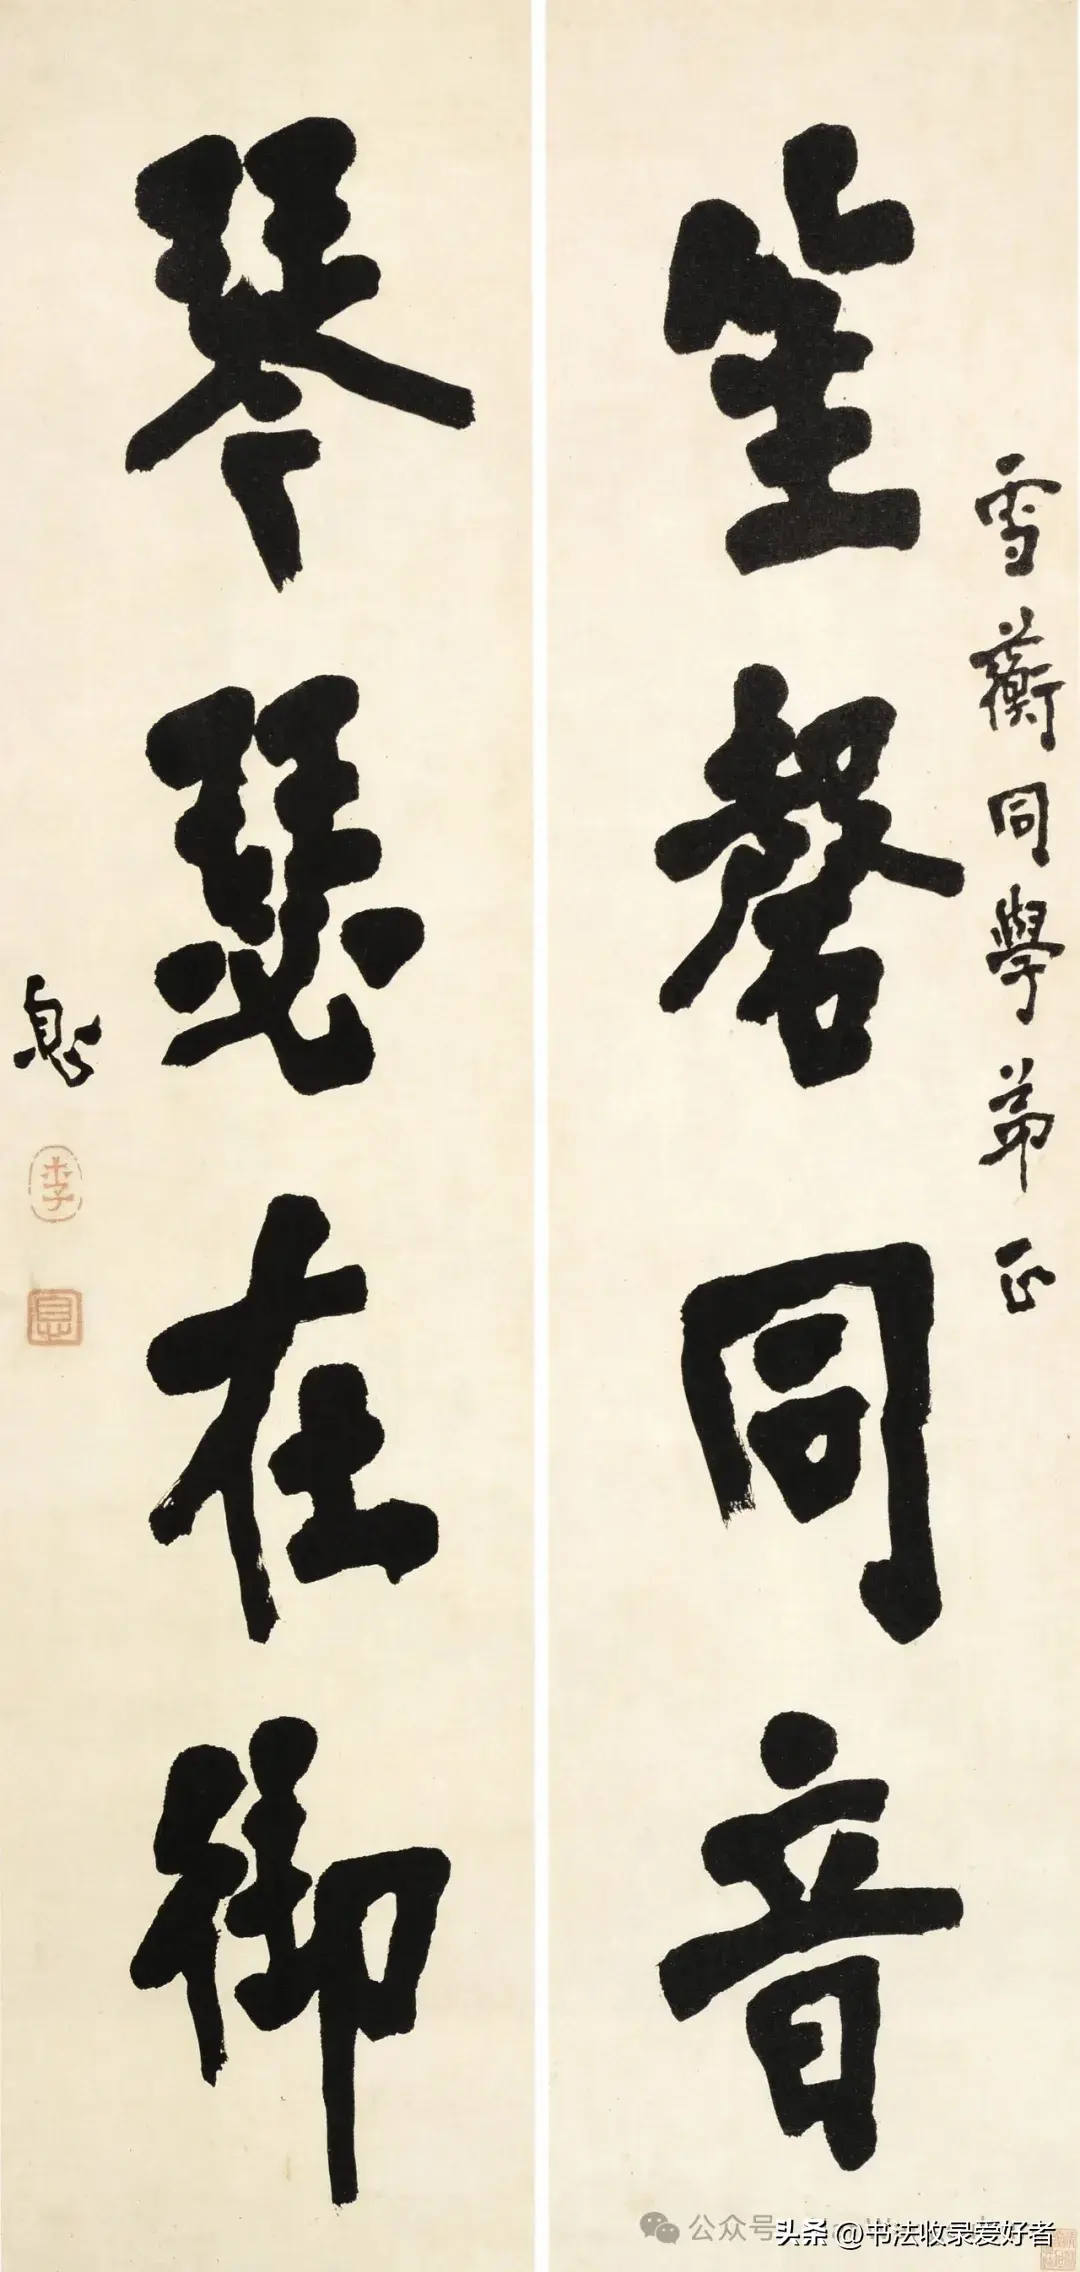 雪蘅同學弟正
笙磬同音
琴瑟在御
息
李
息
公众号
头条 @书法收录爱好者